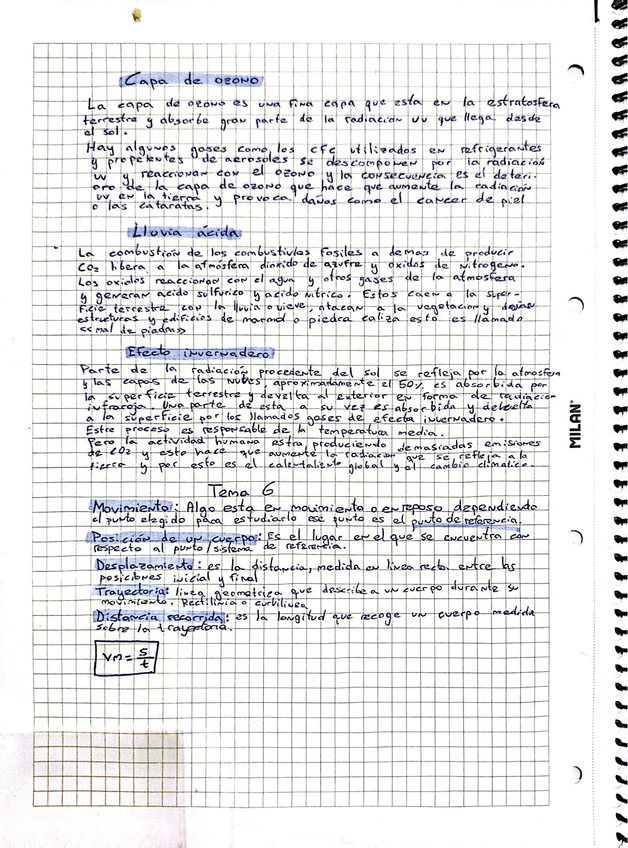 Capa de ozono
La capa de ozono es una fina capa que esta en la estratosfera
terrestre y absorbe gran parte de la radiacion uv que llega desde
el sol.
Hay algunos gases como los cfc utilizados en refrigerantes
y propelentes de aerosoles se descomponen por la radiación
uv y reaccionan con el ozono y la consecuencia es el deteri-
oro de la capa de ozono que hace que aumente la radiación
uv en la tierra y provoca daños como el cancer de piel
o las cataratas.
Lluvia ácida
La combustión de los combustibles fosiles a demas de producir
CO2 libera a la atmósfera dioxido de azufre y oxidos de nitrogeno.
Los oxidos reaccionan con el agua y otros gases de la atmosfera
y generan acido sulfurico y acido nitrico. Estos caen a la super-
ficie terrestre con la lluvia o nieve, atacan a la vegetacion y dejan
estructuras y edificios de marmol o piedra caliza esto es llamado
<<mal de piedra>>
Efecto invernadero
Parte de la radiación procedente del sol se refleja por la atmosfera
y las capas de las nubes, aproximadamente el 50% es absorbida por
la superficie terrestre y devuelta al exterior en forma de radiacion
infraroja. Una parte de esta a su vez es absorbida y devuelta
a la superficie por los llamados gases de efecto invernadero.
Este proceso es responsable de la temperatura media.
Pero la actividad humana esta produciendo demasiadas emisiones
de CO2 y esto hace que aumente la radiacion que se refleja a la
tierra y por esto es el calentamiento global y al cambio climatico.
Tema 6
Movimiento: Algo esta en movimiento o en reposo dependiendo
el punto elegido para estudiarlo ese punto es el punto de referencia.
Posición de un cuerpo: Es el lugar en el que se encuentra con
respecto al punto/sistema de referencia.
Desplazamiento: es la distancia, medida en linea recta entre las
posiciones inicial y final
Trayectoria: linea geometrica que describe a un cuerpo durante su
movimiento. Rectilinia o curbilinea
Distancia recorrida: es la longitud que recoge un cuerpo medida
sobre la trayectoria.
Vm = s/t
MILAN